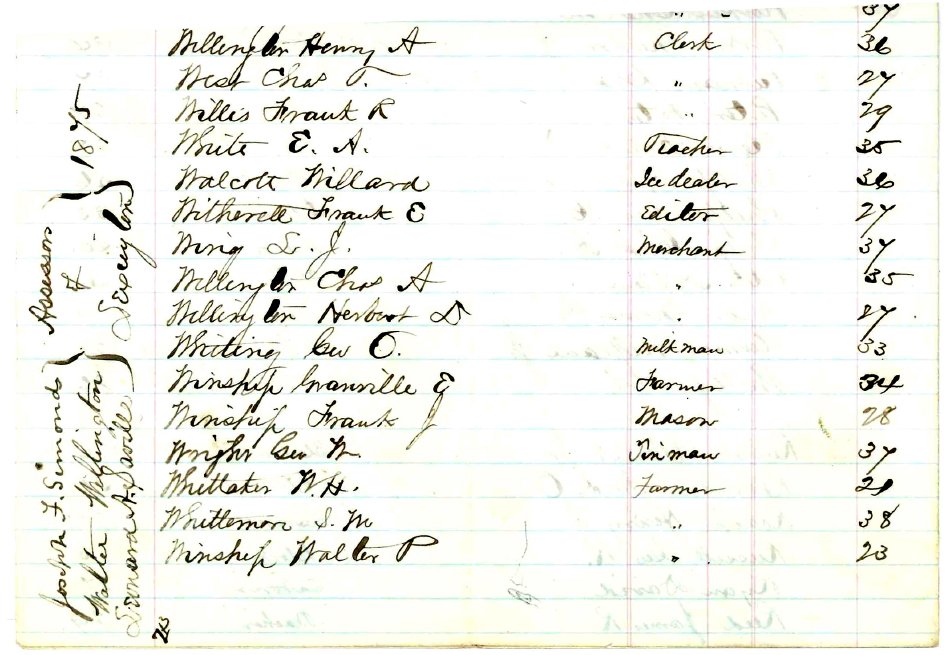 " 37
Wellington Henry A Clerk 36
West Chas T. " 27
Willis Frank R " 29
White E. A. Teacher 35
Walcott Willard Ice dealer 36
Witherell Frank E Editor 27
Wing L. J. Merchant 37
Wellington Chas A " 35
Wellington Herbert L " 27
Whiting Geo O. Milkman 33
Winship Granville E Farmer 34
Winship Frank J Mason 28
Wright Geo W. Tinman 37
Whittaker W.H. Farmer 21
Whittemore S. W " 38
Winship Walter P " 23
Joseph F. Simonds } Assessors } 1875
Walter Wellington of
Leonard A. Saville } Lexington }